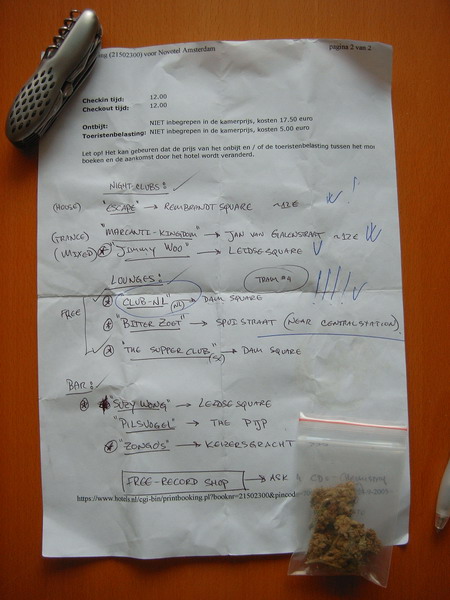 (21502300) voor Novotel Amsterdam pagina 2 van 2
Checkin tijd: 12.00
Checkout tijd: 12.00
Ontbijt: NIET inbegrepen in de kamerprijs, kosten 17.50 euro
Toeristenbelasting: NIET inbegrepen in de kamerprijs, kosten 5.00 euro
Let op! Het kan gebeuren dat de prijs van het ontbijt en / of de toeristenbelasting tussen het
boeken en de aankomst door het hotel wordt veranderd.
NIGHT-CLUBS:
(HOUSE) "ESCAPE" → REMBRANDT SQUARE ~12€
(TRANCE) "MARCANTI-KINGDOM" → JAN VAN GALENSTRAAT ~12€
(MIXED) "JIMMY WOO" → LEIDSE SQUARE
LOUNGES: TRAM #4
"CLUB-NL" (NL) → DAM SQUARE
FREE
"BITTER ZOET" → SPUISTRAAT (NEAR CENTRALSTATION)
"THE SUPPER CLUB" → DAM SQUARE
BAR:
"SUZY WONG" → LEIDSE SQUARE
"PILSVOGEL" → THE PIJP
"ZONGO'S" → KEIZERSGRACHT
FREE-RECORD SHOP → ASK
https://www.hotels.nl/cgi-bin/printbooking.pl?booknr=21502300&pincod